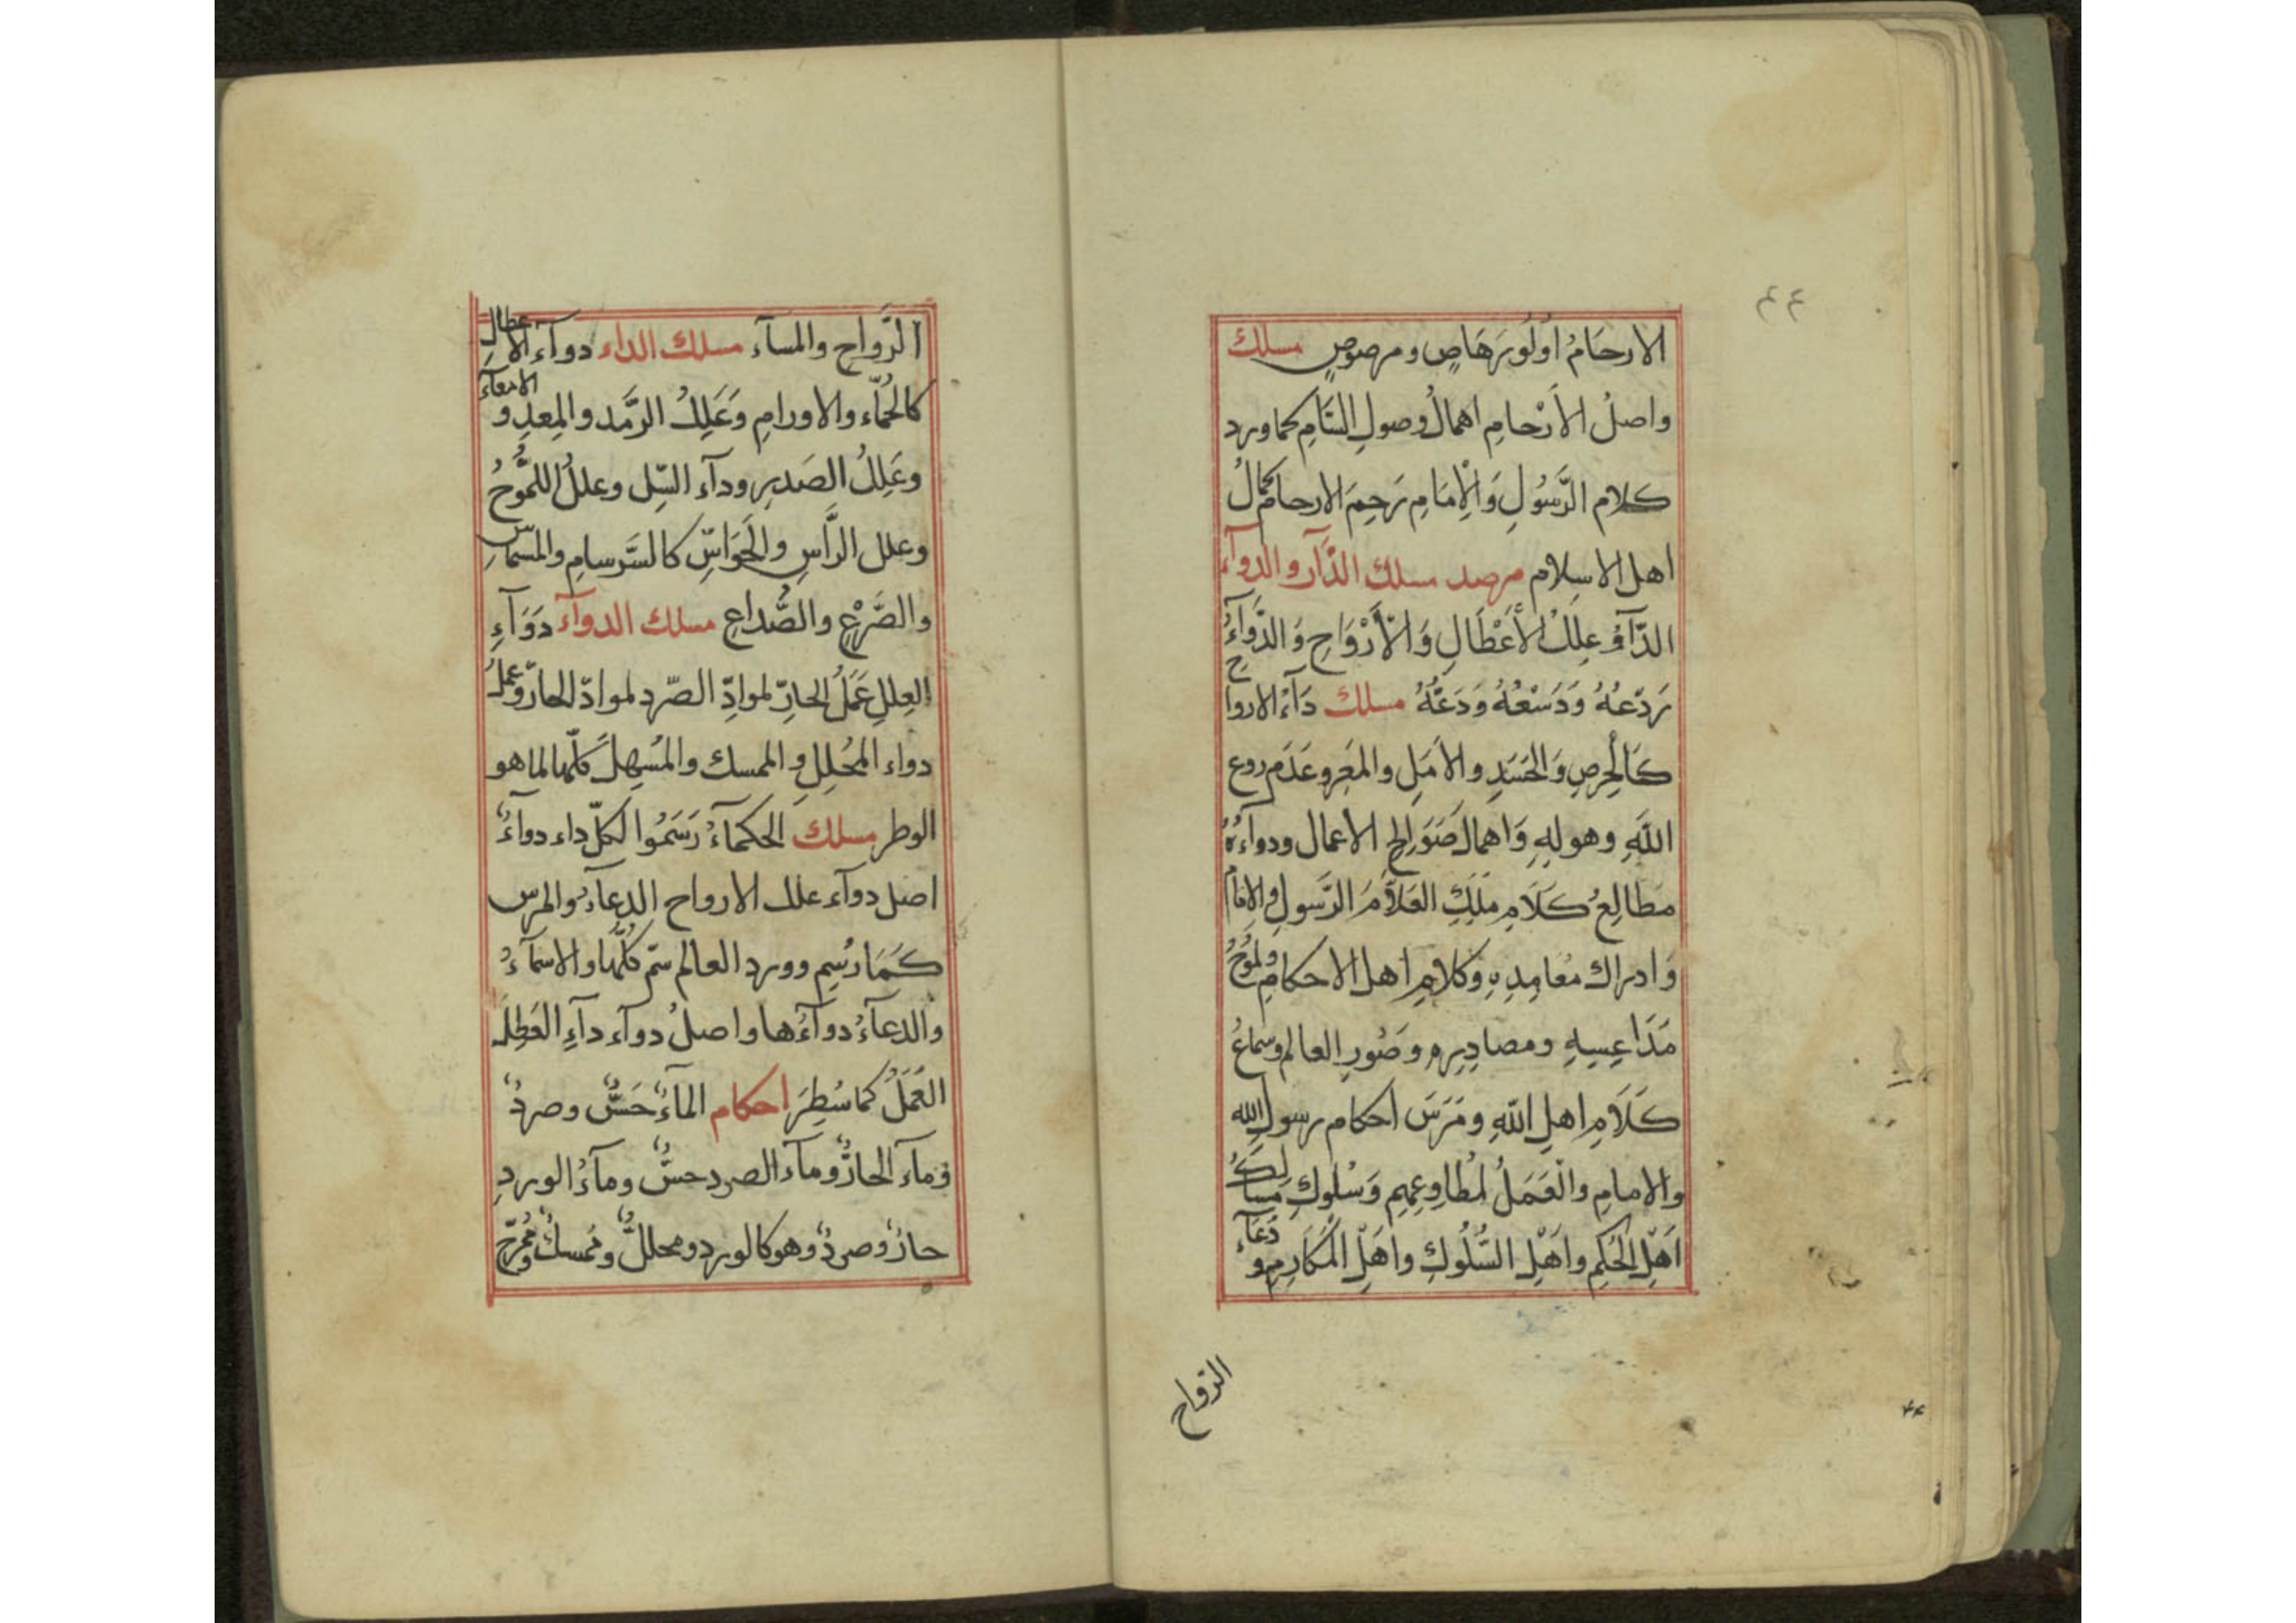 ٤٤
الارحَامُ اُولُو رَهَاصٍ ومرصوصٍ مسلك
واصلُ الاَرْحامِ اهمالُ وصولِ السَّامِ كما ورد
كلام الرَّسُولِ وَالْاِمَامِ رَحِمَ الارحام كمالُ
اهل الاسلام مرصد مسلك الدّآء والدوآء
الدّآءُ عِلَلُ الْأَعْطَالِ وَالْأَرْوَاحِ وَالدَّوآءُ
رَدّعُهُ وَدَسْعُهُ وَدَعَّهُ مسلك دَآءُ الارواح
كَالْحِرصِ وَالحَسَدِ والاَمَلِ والمَعْرِ وعَدَم روع
اللّٰهِ وهولِهِ وَاهمالِ صَوَالِحِ الاعمال ودوآءُهُ
مَطَالِعُ كَلَامِ مَلِكِ العَلَّامِ الرَّسولِ والاِمَام
وَادراك مَعامِدِهِ وكلامِ اهل الاحكامِ ولُمُوحُ
مَدَاعِسِهِ ومصادِرِهِ وصُورِ العالم وسماعُ
كَلَامِ اهلِ اللّٰهِ ومَرَسَ احكام رسولِ الله
والامامِ والْعَمَلُ لمُطاوِعِهِم وَسُلُوكِ مَسالك
اَهْلِ الحُكِم واَهْلِ السُّلُوكِ واَهْلِ المَكَارِمِ ودُعَآء
الرواح
٤٤
الرَّواحِ والمسآء مسلك الداء دوآء الاعطالِ
كالحُمّآء والاورامِ وَعَلِلُ الرَّمَد والمِعدِ والامعآء
وعَلِلُ الصَدرِ ودآء السِّل وعللُ اللُّمُوحُ
وعلل الرَّاسِ والْحَوَاسِّ كالسَّرسامِ والمسماسّ
والصَّرْعِ والصُّداعِ مسلك الدوآء دَوَآءِ
العِللِ عَمَلُ الحارّ لموادِّ الصّرد لموادّ الحارّ وعَمَلُ
دواء المُحَلِلِ والممسك والمُسهِلُ كلّها لما هو
الوطر مسلك الحكمآءُ رَسَمُوا لكلّ داء دوآءً
اصل دوآء علل الارواح الدعآءُ والهرس
كَمَا رُسِم وورد العالم سمّ كُلّها والاسمآءُ
والدعآءُ دوآءُها واصلُ دوآء دآءِ العَطِلِ
العَمَلُ كما سُطِرَ احكام المآءُ حَسٌّ وصردٌ
ومآء الحارُّ ومآء الصرد حسٌّ ومآءُ الوردِ
حارٌ وصردٌ وهو كالورد ومحللٌ وممسكٌ ومُمَرّح